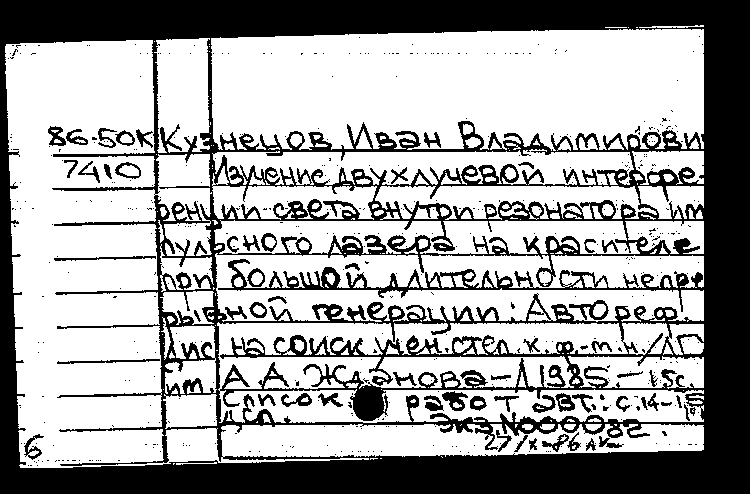 86-50К Кузнецов, Иван Владимирович
7410 Изучение двухлучевой интерфе-
ренции света внутри резонатора им
пульсного лазера на красителе
при большой длительности непре
рывной генерации: Автореф.
дис. на соиск. учен. степ. к. ф.-м. н. /ЛГ
им. А. А. Жданова - Л, 1985. - 15с.
Список работ авт.: с. 14-15
ДСП. Экз. N000082.
6